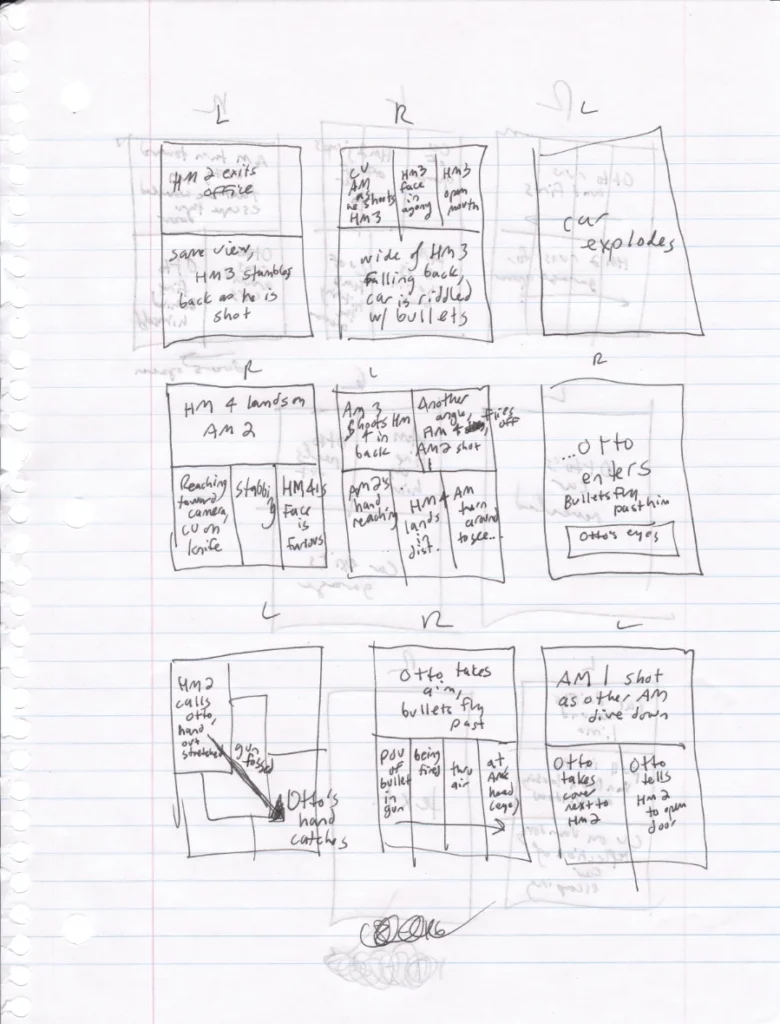 L
R
L
HM 2 exits
office
same view,
HM3 stumbles
back as he is
shot
CU
AM
as
he shoots
HM3
HM3
face
in
agony
HM3
open
mouth
wide of HM3
falling back,
car is riddled
w/ bullets
car
explodes
R
L
R
HM 4 lands on
AM 2
Reaching
toward
camera,
CU on
knife
Stabbing
HM4's
Face
is
furious
AM 3
shoots HM
4 in
back
Another
angle,
AM 4
fires
off
AM2 shot
AM2's
hand
reaching
HM 4
lands
in
dist.
AM
turn
around
to see...
...Otto
enters
Bullets fly
past him
Otto's eyes
L
R
L
HM2
calls
Otto,
hand
out
stretched
gun
tossed
Otto's
hand
catches
Otto takes
aim,
bullets fly
past
POV
of
bullet
in
gun
being
fired
thru
air
at
head
AM 1 shot
as other AM
dive down
Otto
takes
cover
next to
HM2
Otto
tells
HM2
to open
door